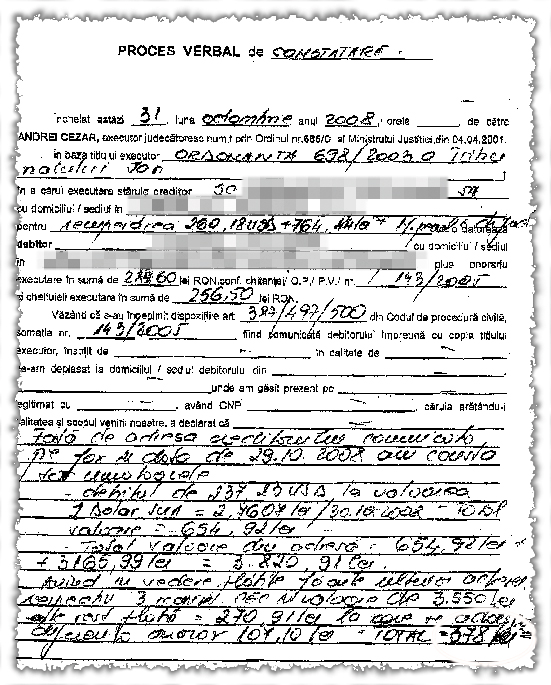 PROCES VERBAL de CONSTATARE.
Încheiat astăzi 31, luna octombrie anul 2008, orele ______ de către
ANDREI CEZAR, executor judecătoresc numit prin Ordinul nr.686/C al Ministrului Justiției din 04.04.2001.
în baza titlului executor ORDONANTA 698/2003 a Tribu
nalului
în a cărui executare stăruie creditor SC
cu domiciliul / sediul în
pentru recuperarea 260,18 USD + 764, datorează
debitor cu domiciliul / sediul
în plus onorariu
executare în sumă de lei RON.conf. chitanței/ O.P./ P.V./ nr. 143/2005
și cheltuieli executare în sumă de 256,50 lei RON.
Văzând că s-au îndeplinit dispozițiile art. 387/497/500 din Codul de procedură civilă,
somația nr. 143/2005 fiind comunicată debitorului împreună cu copia titlului
executor, însoțit de în calitate de
ne-am deplasat la domiciliul / sediul debitorului din
unde am găsit prezent pe
legitimat cu , având CNP , căruia arătându-i
calitatea și scopul venirii noastre, a declarat că
Față de adresa creditorului comunicată
pe fax în data de 29.10.2008 am consta
tat următoarele
- debitul de 237,23 USD la valoarea
1 Dolar SUA = 2,7607 lei / 30.10.2008 - Total
valoare = 654,92 lei
- Total valoare din adresă = 654,92 lei +
+ 3165,99 lei = 3.820,91 lei.
Având în vedere plățile făcute ulterior
respectiv 3 CEC în valoare de 3.550 lei
rest plată = 270,91 lei la care se
diferența onorar 107,10 lei - TOTAL = 378 lei